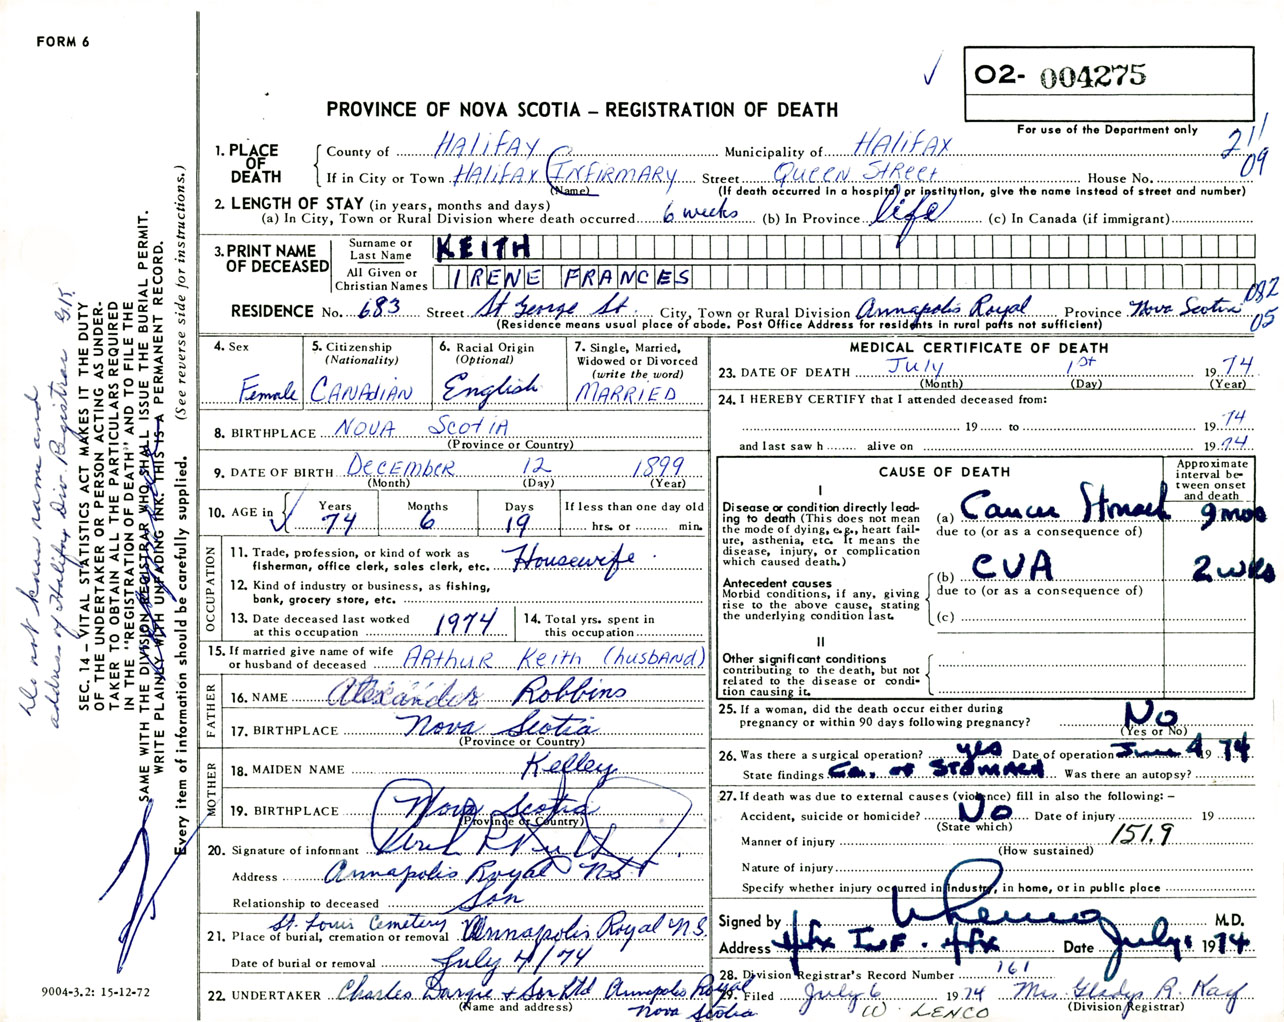 FORM 6
O2- 004275
For use of the Department only
PROVINCE OF NOVA SCOTIA – REGISTRATION OF DEATH
211
09
1. PLACE OF DEATH County of HALIFAX Municipality of HALIFAX
If in City or Town HALIFAX INFIRMARY Street QUEEN STREET House No.
(Name) (If death occurred in a hospital or institution, give the name instead of street and number)
2. LENGTH OF STAY (in years, months and days)
(a) In City, Town or Rural Division where death occurred 6 weeks (b) In Province life (c) In Canada (if immigrant)
3. PRINT NAME OF DECEASED
Surname or Last Name KEITH
All Given or Christian Names IRENE FRANCES
RESIDENCE No. 683 Street St George St. City, Town or Rural Division Annapolis Royal Province Nova Scotia
(Residence means usual place of abode. Post Office Address for residents in rural parts not sufficient)
082
05
4. Sex Female
5. Citizenship (Nationality) CANADIAN
6. Racial Origin (Optional) English
7. Single, Married, Widowed or Divorced (write the word) MARRIED
8. BIRTHPLACE NOVA SCOTIA
(Province or Country)
9. DATE OF BIRTH DECEMBER 12 1899
(Month) (Day) (Year)
10. AGE in Years 74 Months 6 Days 19 If less than one day old hrs. or min.
OCCUPATION
11. Trade, profession, or kind of work as fisherman, office clerk, sales clerk, etc. Housewife
12. Kind of industry or business, as fishing, bank, grocery store, etc.
13. Date deceased last worked at this occupation 1974
14. Total yrs. spent in this occupation
15. If married give name of wife or husband of deceased ARTHUR KEITH (husband)
FATHER
16. NAME Alexander Robbins
17. BIRTHPLACE Nova Scotia
(Province or Country)
MOTHER
18. MAIDEN NAME Kelley
19. BIRTHPLACE Nova Scotia
(Province or Country)
20. Signature of informant
Address Annapolis Royal NS
Relationship to deceased Son
St. Louis Cemetery
21. Place of burial, cremation or removal Annapolis Royal N.S.
Date of burial or removal July 4/74
22. UNDERTAKER Charles Dargie & Son Ltd Annapolis Royal
(Name and address) Nova Scotia
MEDICAL CERTIFICATE OF DEATH
23. DATE OF DEATH July 1st 1974
(Month) (Day) (Year)
24. I HEREBY CERTIFY that I attended deceased from:
19 to 1974
and last saw h alive on 1974
CAUSE OF DEATH
Approximate interval between onset and death
I
Disease or condition directly leading to death (This does not mean the mode of dying, e.g., heart failure, asthenia, etc. It means the disease, injury, or complication which caused death.)
(a) Cancer Stomach 9 mos
due to (or as a consequence of)
Antecedent causes
Morbid conditions, if any, giving rise to the above cause, stating the underlying condition last.
(b) CVA 2 wks
due to (or as a consequence of)
(c)
II
Other significant conditions contributing to the death, but not related to the disease or condition causing it.
25. If a woman, did the death occur either during pregnancy or within 90 days following pregnancy? No
(Yes or No)
26. Was there a surgical operation? yes Date of operation June 4 1974
State findings Ca. of STOMACH Was there an autopsy?
27. If death was due to external causes (violence) fill in also the following: –
Accident, suicide or homicide? No Date of injury 19
(State which)
Manner of injury 151.9
(How sustained)
Nature of injury
Specify whether injury occurred in industry, in home, or in public place
Signed by M.D.
Address Hfx INF. Hfx Date July 1 1974
28. Division Registrar's Record Number 161
29. Filed July 6 1974 Mrs. Gladys R. Kay
(Division Registrar)
W. LENCO
Do not know name and
address of Halifax Div. Registrar GK
SEC. 14 – VITAL STATISTICS ACT MAKES IT THE DUTY
OF THE UNDERTAKER OR PERSON ACTING AS UNDER-
TAKER TO OBTAIN ALL THE PARTICULARS REQUIRED
IN THE "REGISTRATION OF DEATH" AND TO FILE THE
SAME WITH THE DIVISION REGISTRAR WHO SHALL ISSUE THE BURIAL PERMIT.
WRITE PLAINLY WITH UNFADING INK. THIS IS A PERMANENT RECORD.
Every item of information should be carefully supplied. (See reverse side for instructions.)
9004-3.2: 15-12-72